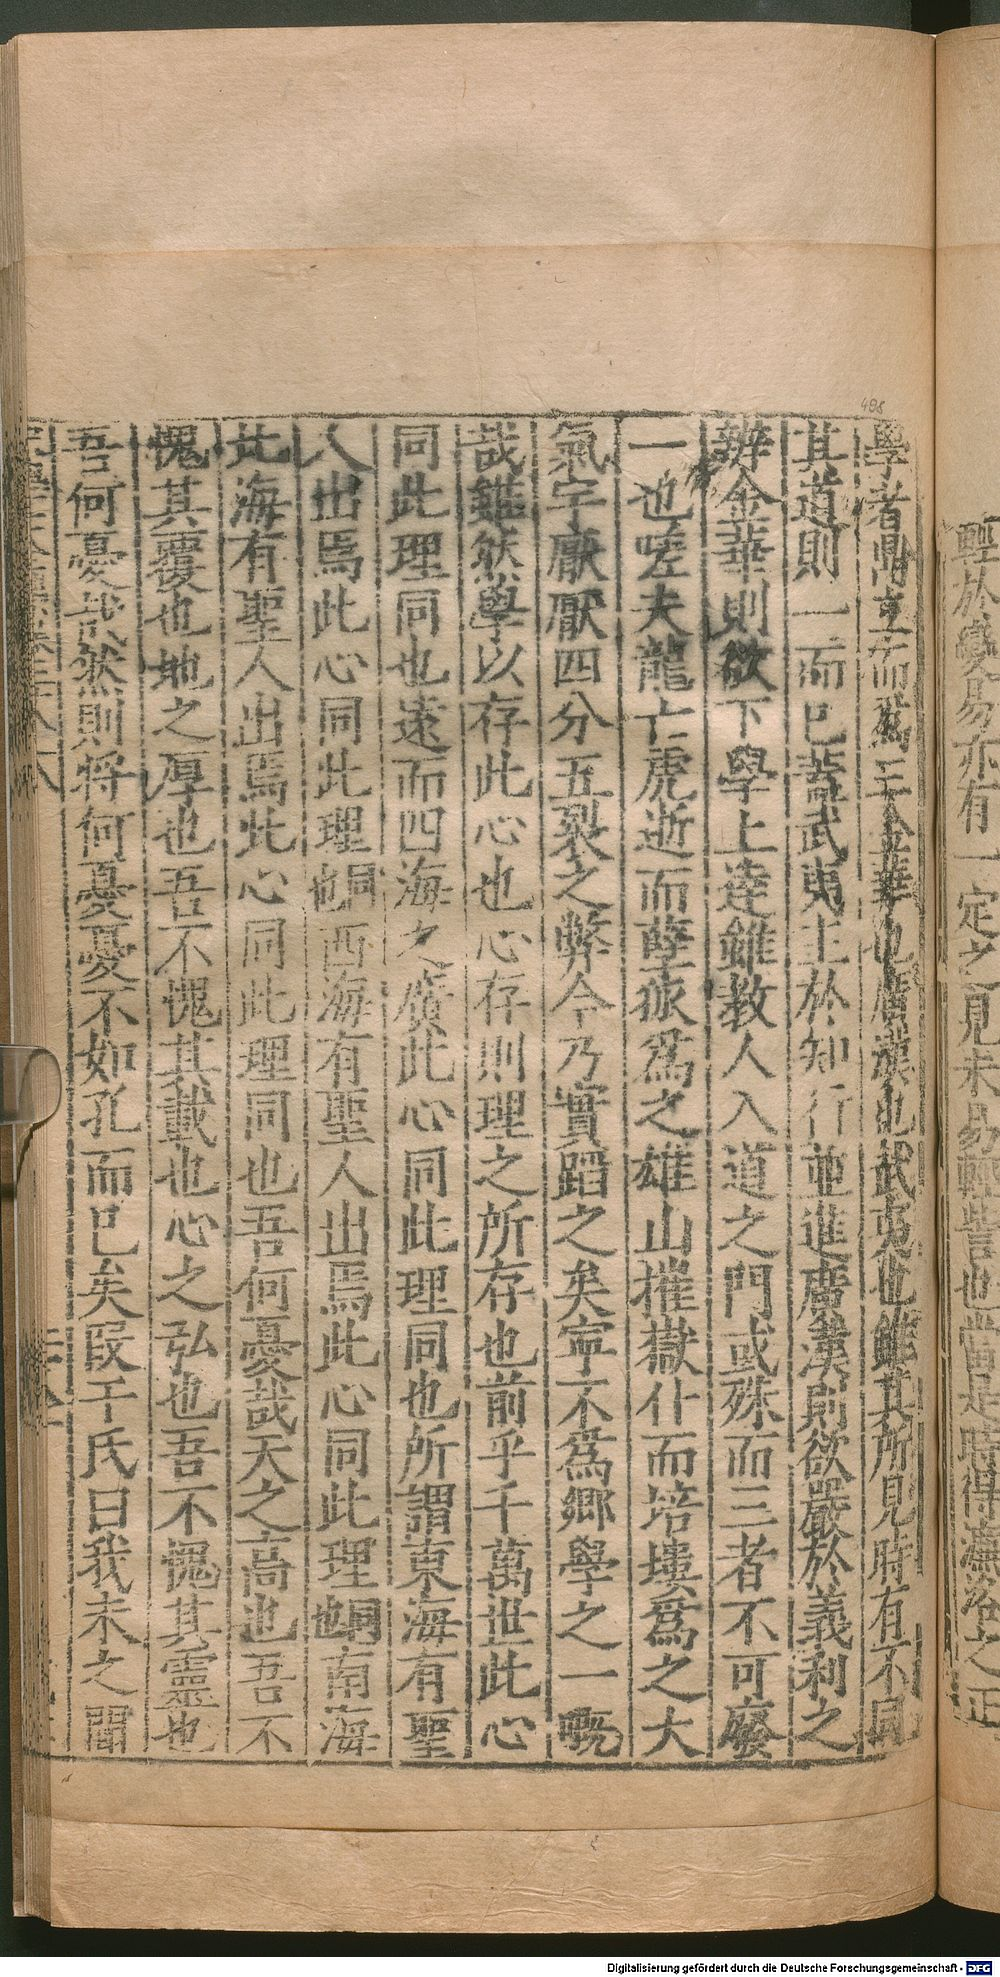 輕於變易亦有一定之見未易輕訾也當是時得濂洛之正
495
學者鼎立而爲三金華也廣漢也武夷也雖其所見時有不同
其道則一而已蓋武夷主於知行並進廣漢則欲嚴於義利之
辨金華則欲下學上達雖教人入道之門或殊而三者不可廢
一也嗟夫龍亡虎逝而孽狐爲之雄山摧嶽仆而培塿爲之大
氣宇厭厭四分五裂之弊今乃實蹈之矣寧不爲鄉學之一嘅
哉雖然學以存此心也心存則理之所存也前乎千萬世此心
同此理同也遠而四海之廣此心同此理同也所謂東海有聖
人出焉此心同此理同也西海有聖人出焉此心同此理同也南海
北海有聖人出焉此心同此理同也吾何憂哉天之高也吾不
愧其覆也地之厚也吾不愧其載也心之弘也吾不愧其靈也
吾何憂哉然則將何憂憂不如孔而已矣段干氏曰我未之聞
Digitalisierung gefördert durch die Deutsche Forschungsgemeinschaft - DFG